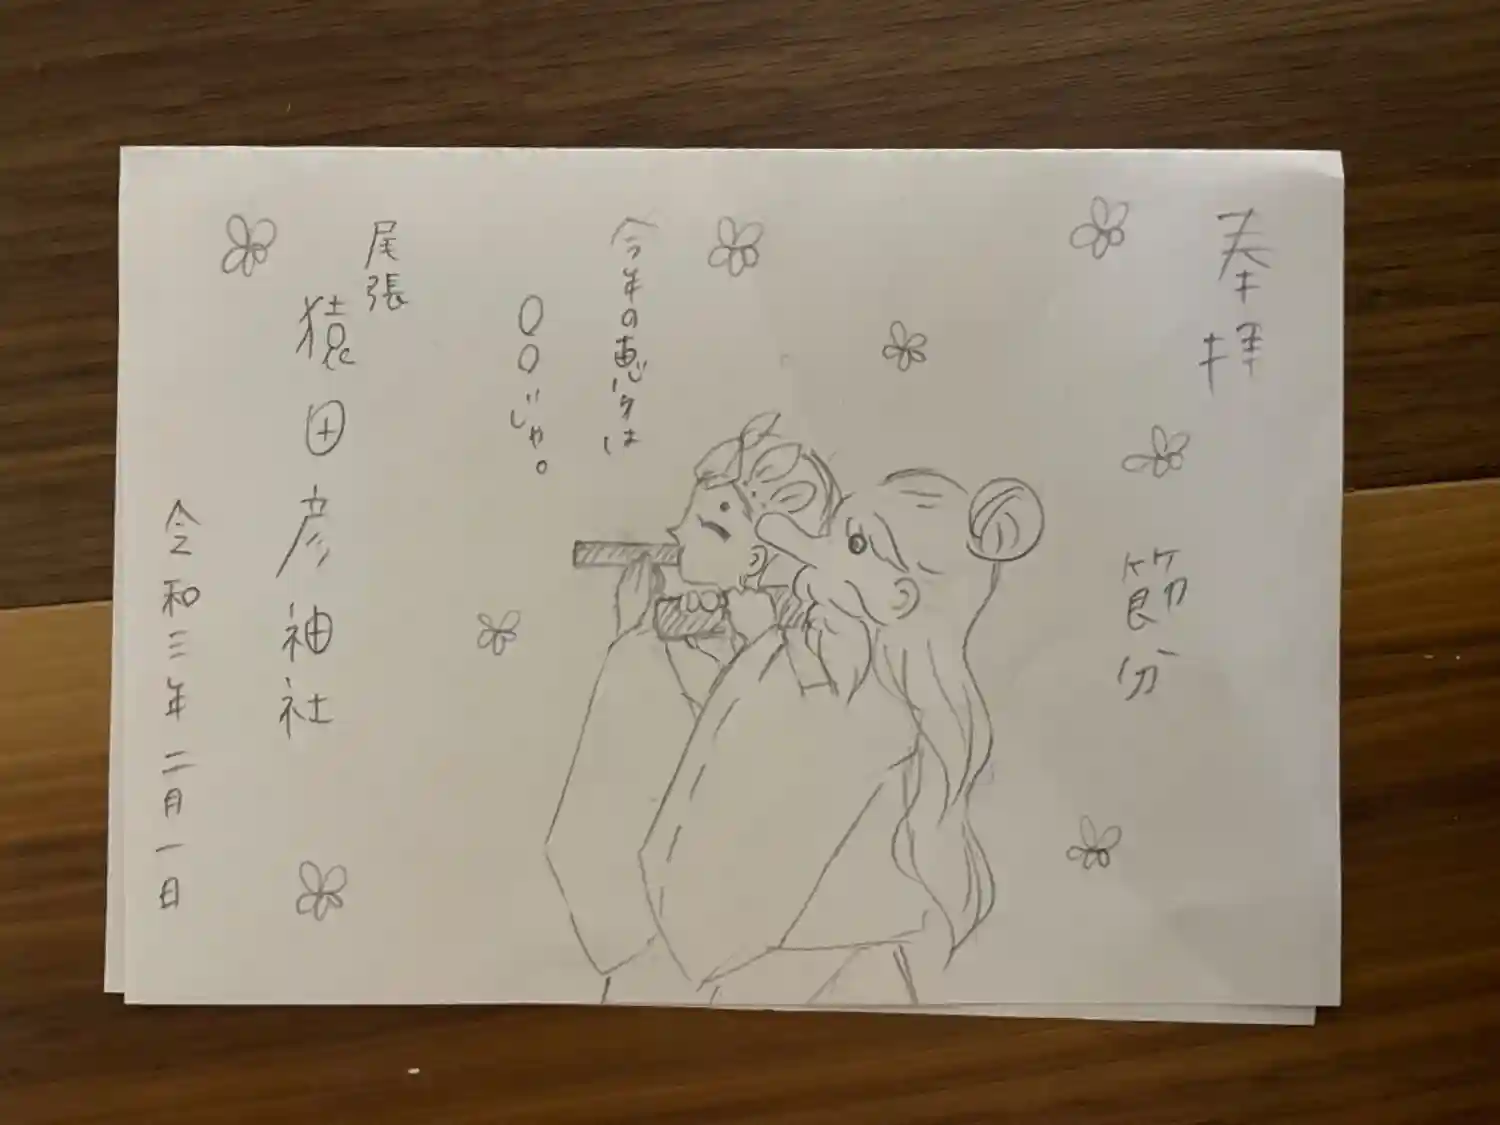 奉拝
節分
今年の恵方は
〇〇じゃ。
尾張
猿田彦神社
令和三年二月一日